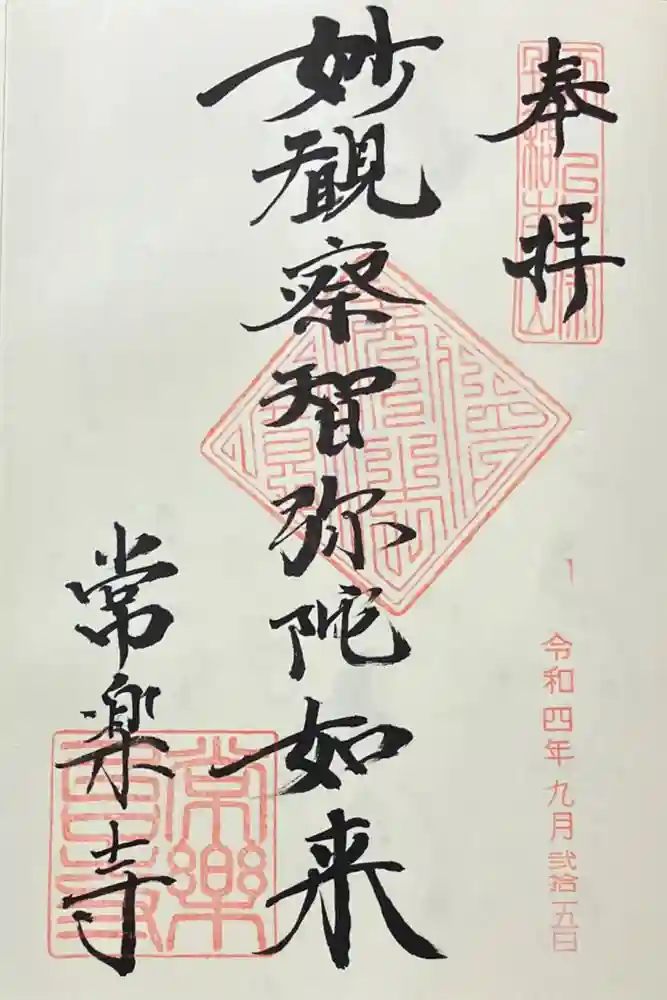 奉拝
令和四年九月弐拾五日
妙観察智弥陀如来
常楽寺
常樂